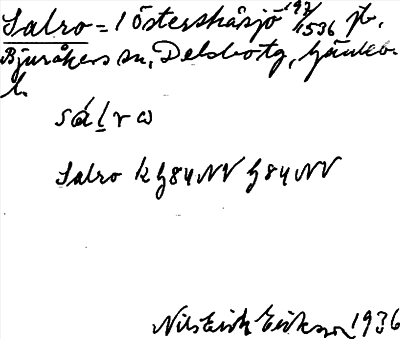 Salro = 1 Österskärsjö 193/1536 jb,
Bjuråkers sn, Delsbo tg, Gävleb.
l.
sálrω
Salro k G84NV G84NV
Nils Erik Erikson 1936